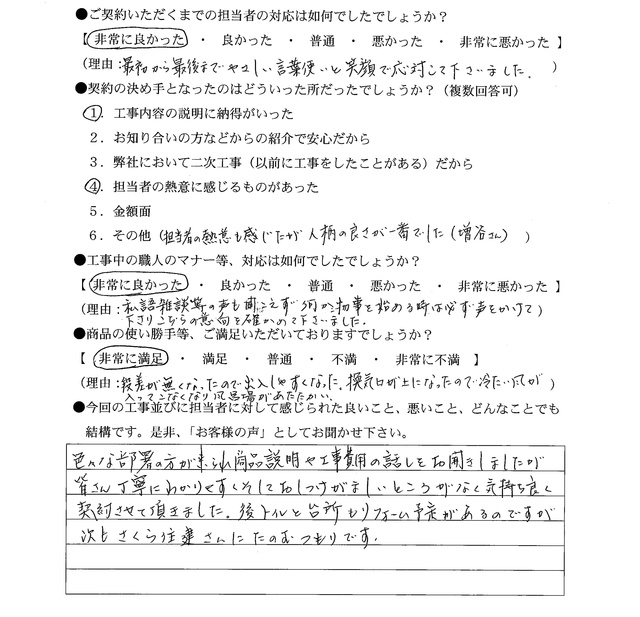 ●ご契約いただくまでの担当者の対応は如何でしたでしょうか？
【 非常に良かった ・ 良かった ・ 普通 ・ 悪かった ・ 非常に悪かった 】
(理由：最初から最後までやさしい言葉使いと笑顔で応対して下さいました。 )
●契約の決め手となったのはどういった所だったでしょうか？（複数回答可）
1．工事内容の説明に納得がいった
2．お知り合いの方などからの紹介で安心だから
3．弊社において二次工事（以前に工事をしたことがある）だから
4．担当者の熱意に感じるものがあった
5．金額面
6．その他（担当者の熱意も感じたが人柄の良さが一番でした（増谷さん） ）
●工事中の職人のマナー等、対応は如何でしたでしょうか？
【 非常に良かった ・ 良かった ・ 普通 ・ 悪かった ・ 非常に悪かった 】
(理由：私語雑談等の声も聞こえず何か物事を始める時は必ず声をかけて )
下さりこちらの意向を確かめて下さいました。
●商品の使い勝手等、ご満足いただいておりますでしょうか？
【 非常に満足 ・ 満足 ・ 普通 ・ 不満 ・ 非常に不満 】
(理由：段差が無くなったので出入しやすくなった。換気口が上になったので冷たい風が )
入ってこなくなり風呂場があたたかい。
●今回の工事並びに担当者に対して感じられた良いこと、悪いこと、どんなことでも
結構です。是非、「お客様の声」としてお聞かせ下さい。
色々な部署の方が来られ商品説明や工事費用の話しをお聞きしましたが
皆さん丁寧にわかりやすくそしておしつけがましいところがなく気持ち良く
契約させて頂きました。後トイレと台所もリフォーム予定があるのですが
次もさくら住建さんにたのむつもりです。